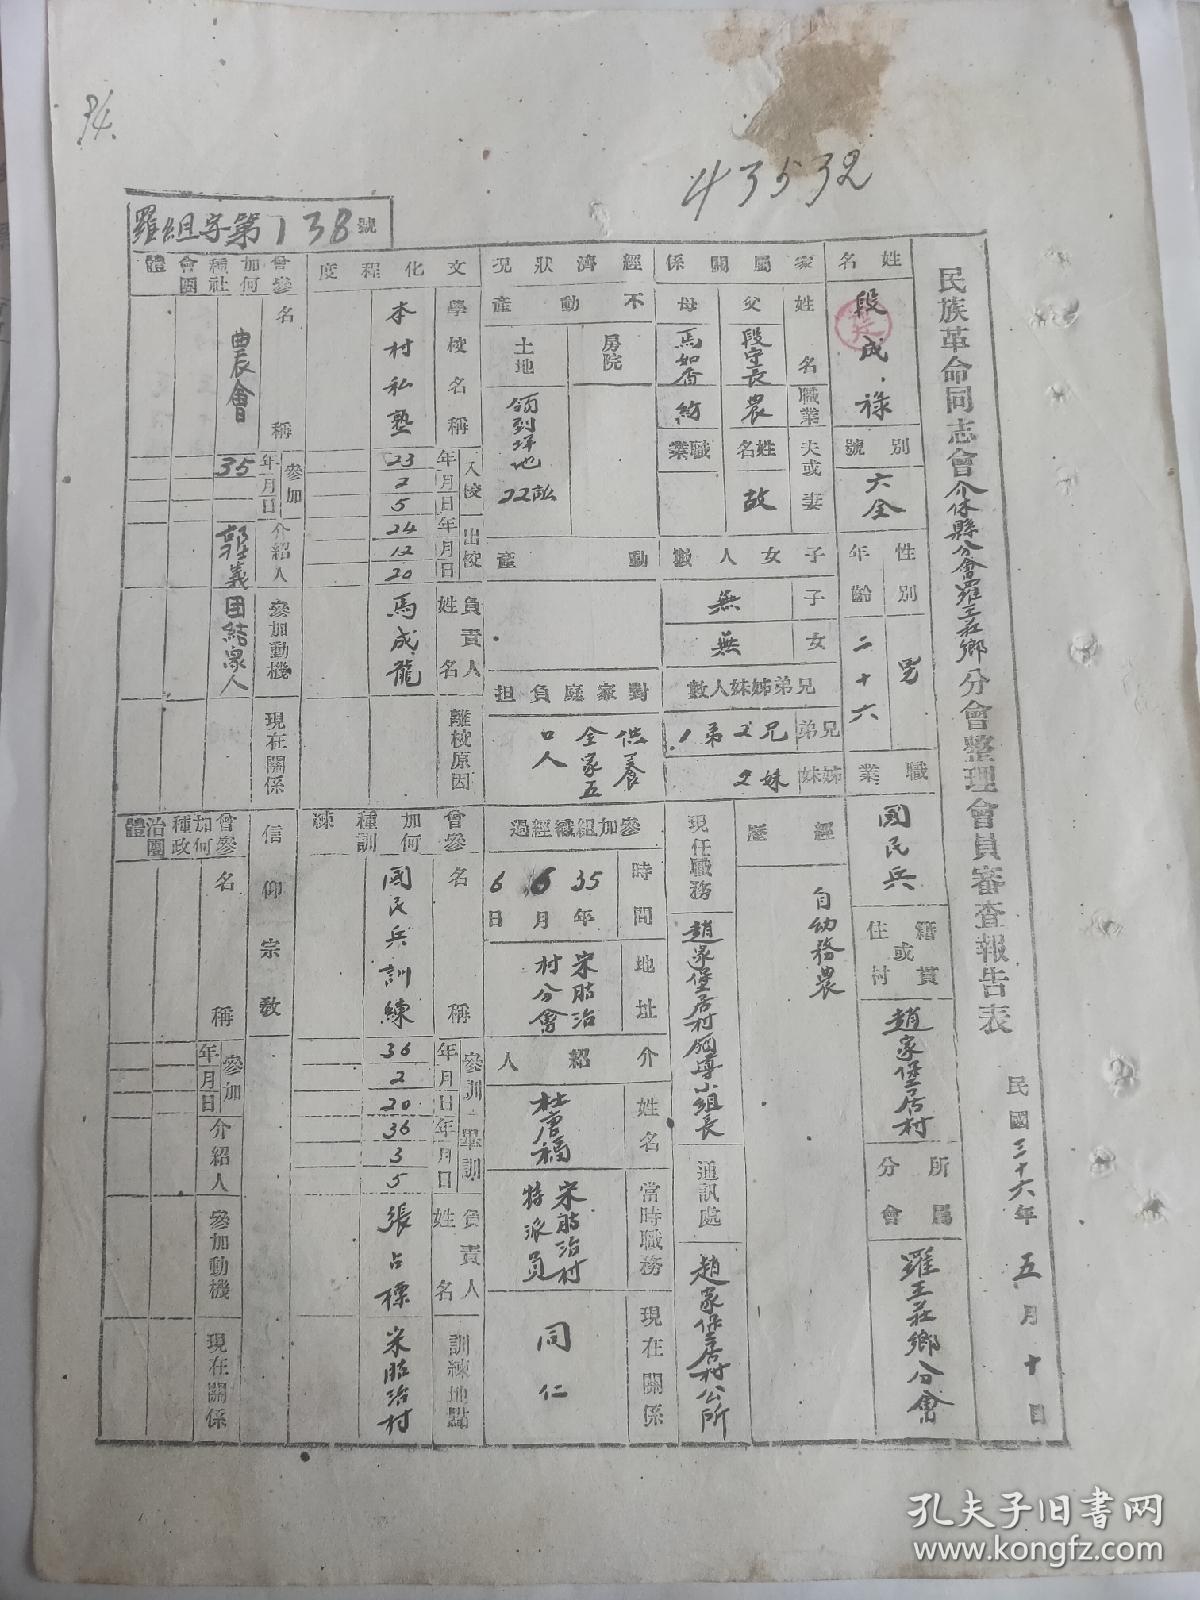 34.
43532
羅組字第138號
民族革命同志會介休縣分會羅王莊鄉分會整理會員審查報告表
民國三十六年五月十日
姓名
段成祿
別號
六全
性別
男
年齡
二十六
職業
國民兵
籍貫或住村
趙家堡居村
所屬分會
羅王莊鄉分會
家屬關係
姓名
職業
父
段守長
農
母
馬如香
紡
夫或妻
姓名
故
職業
子女人數
子
無
女
無
兄弟姊妹人數
兄弟
2兄
1弟
姊妹
2妹
經歷
自幼務農
現任職務
趙家堡居村領導小組長
通訊處
趙家堡居村公所
經濟狀況
不動產
房院
土地
領到坪地22畝
動產
對家庭負担
供養全家五口人
參加組織經過
時間
35年
6月
6日
地址
宋 治村分會
介紹人
姓名
杜唐福
當時職務
宋 治村特派員
現在關係
同仁
文化程度
學校名稱
本村私塾
入校
年月日
23
2
5
出校
年月日
24
12
20
負責人姓名
馬成龍
離校原因
曾參加何種訓練
名稱
國民兵訓練
參訓
年月日
36
2
20
畢訓
年月日
36
3
5
負責人姓名
張占標
訓練地點
宋 治村
曾參加何種社會團體
名稱
農會
參加
年月日
35
介紹人
郭義
參加動機
团結衆人
現在關係
信仰宗教
曾參加何種政治團體
名稱
參加
年月日
介紹人
參加動機
現在關係
孔夫子旧书网
www.kongfz.com